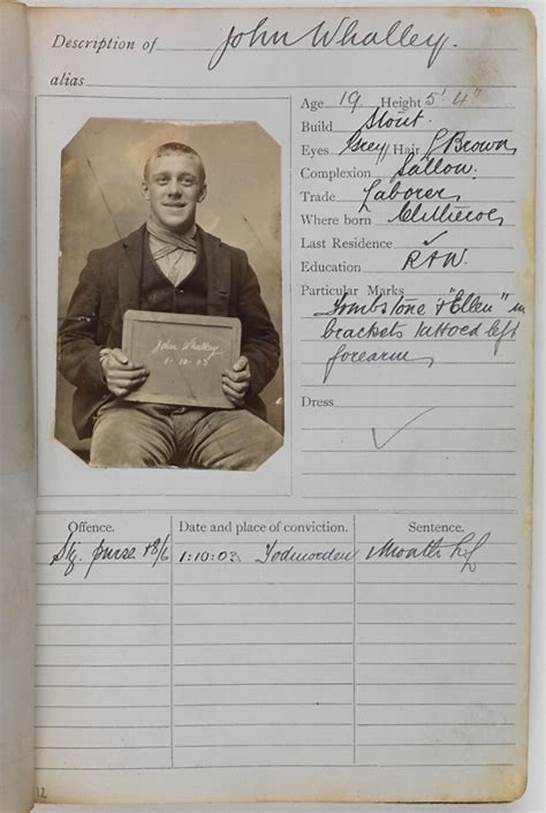 Description of John Whalley.
alias
Age 19 Height 5' 4"
Build Stout.
Eyes Grey Hair L Brown
Complexion Sallow.
Trade Laborer
Where born Clitheroe
Last Residence ✓
Education R & W.
Particular Marks
Tombstone & "Ellen" in
brackets tattoed left
forearm
Dress
✓
John Whalley
1-10-03
Offence. Date and place of conviction. Sentence.
Stg. purse & 8/6 1:10:03 Todmorden 1 Month H L
12